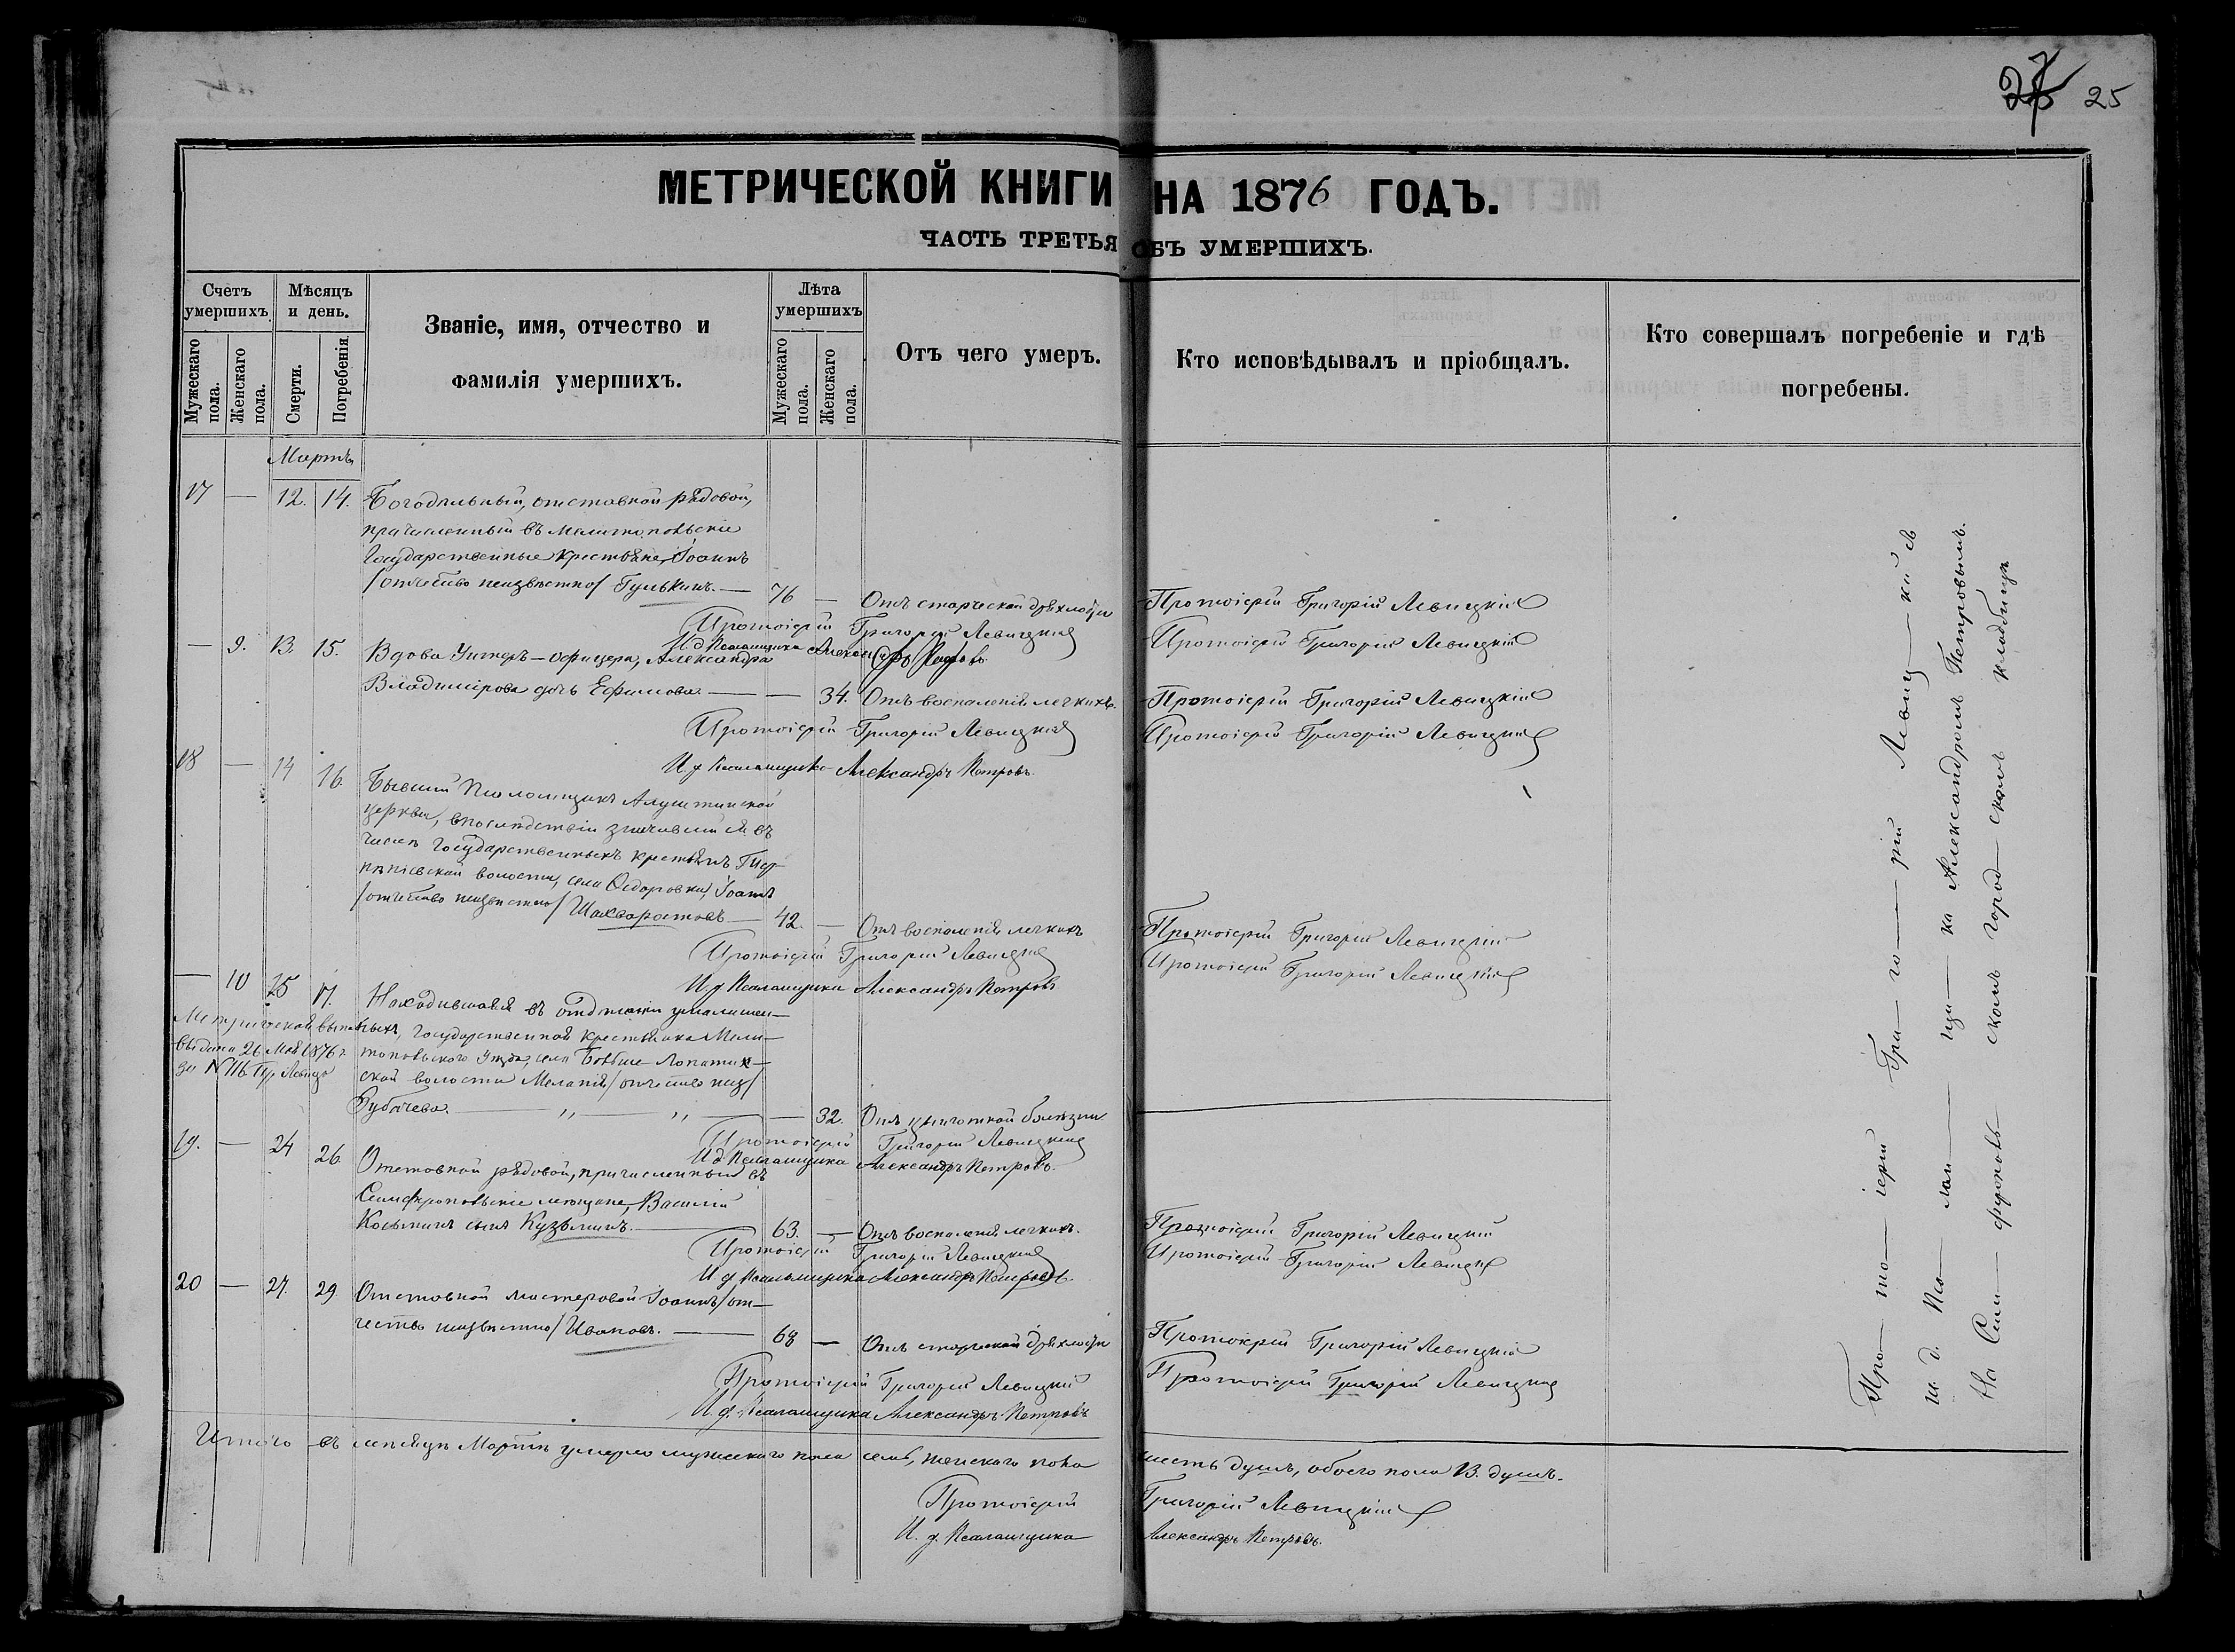 27 25
МЕТРИЧЕСКОЙ КНИГИ НА 1876 ГОДЪ.
ЧАСТЬ ТРЕТЬЯ ОБЪ УМЕРШИХЪ.
Счетъ умершихъ
Мужескаго пола.
Женскаго пола.
Мѣсяцъ и день.
Смерти.
Погребенія.
Званіе, имя, отчество и
фамилія умершихъ.
Лѣта умершихъ
Мужескаго пола.
Женскаго пола.
Отъ чего умеръ.
Кто исповѣдывалъ и пріобщалъ.
Кто совершалъ погребеніе и гдѣ
погребены.
Мартъ
17 — 12. 14. Богодѣльный, отставной рядовой,
причисленный въ Мелитопольскіе
Государственные Крестьяне, Іоаннъ
/отчество неизвѣстно/ Гулькинъ. — 76 — Отъ старческой дряхлости Протоіерей Григорій Левицкій
Протоіерей Григорій Левицкій Протоіерей Григорій Левицкій
И.д. Псаломщика Александръ Петровъ
— 9. 13. 15. Вдова Унтеръ-офицера, Александра
Владимірова дочь Ефимова. — — 34. Отъ воспаленія легкихъ. Протоіерей Григорій Левицкій
Протоіерей Григорій Левицкій Протоіерей Григорій Левицкій
И д Псаломщика Александръ Петровъ.
18 — 14 16. Бывшій Псаломщикъ Алуштинской
церкви, впослѣдствіи въ
числѣ Государственныхъ крестьянъ
волости, села Ѳедоровки, Іоаннъ
/отчество неизвѣстно/ Шахворостовъ — 42. — Отъ воспаленія легкихъ Протоіерей Григорій Левицкій
Протоіерей Григорій Левицкій Протоіерей Григорій Левицкій
И.д Псаломщика Александръ Петровъ
— 10 15 17. Находившаяся въ отдѣленіи умалишен-
ныхъ, Государственная крестьянка Мели-
топольского Уѣзда, села
ской волости Меланія /отчество неиз/
— 32. Отъ цынготной болѣзни
Метрическая выпись
выдана 26 Мая 1876 г.
за № 116. Пр. Левиц.
Протоіерей Григорій Левицкій
И д Псаломщика Александръ Петровъ.
19. — 24 26 Отставной рядовой, причисленный въ
Симферопольскіе мѣщане, Василій
Косьминъ сынъ Кузьминъ. — 63. — Отъ воспаленія легкихъ. Протоіерей Григорій Левицкій
Протоіерей Григорій Левицкій Протоіерей Григорій Левицкій
И д Псаломщика Александръ Петровъ.
20 — 27. 29. Отставной мастеровой Іоаннъ /от-
чество неизвѣстно/ Ивановъ. — 68 — Отъ старческой дряхлости Протоіерей Григорій Левицкій
Протоіерей Григорій Левицкій Протоіерей Григорій Левицкій
И. д. Псаломщика Александръ Петровъ
Про—то—іерей Гри—го—рій Левиц—кій съ
и. д. Пса—лом—щи—ка Александромъ Петровымъ.
На Сим—ферополь—скомъ город—скомъ кладбищѣ
Итого въ мѣсяцѣ Мартѣ умерло мужескаго пола семь, женскаго пола шесть душъ, обоего пола 13. душъ.
Протоіерей Григорій Левицкій
И. д. Псаломщика Александръ Петровъ.